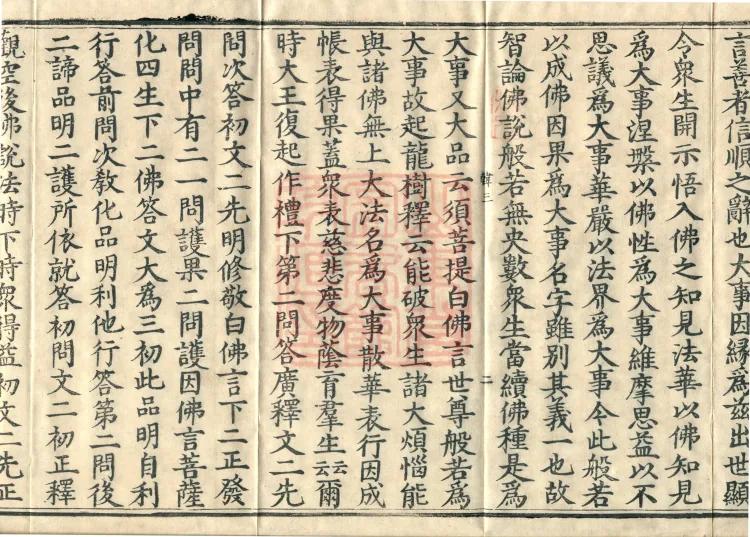 言善者信順之辭也大事因縁爲茲出世顯
令衆生開示悟入佛之知見法華以佛知見
爲大事涅槃以佛性爲大事維摩思益以不
思議爲大事華嚴以法界爲大事今此般若
以成佛因果爲大事名字雖別其義一也故
智論佛說般若無央數衆生當續佛種是爲
韓三
二
大事又大品云須菩提白佛言世尊般若爲
大事故起龍樹釋云能破衆生諸大煩惱能
與諸佛無上大法名爲大事散華表行因成
帳表得果蓋衆表慈悲度物蔭育羣生云云爾
時大王復起作禮下第二問答廣釋文二先
問次答初文二先明修敬白佛言下二正發
問問中有二一問護果二問護因佛言菩薩
化四生下二佛答文大爲三初此品明自利
行答前問次教化品明利他行答第二問後
二諦品明二護所依就答初問文二初正釋
觀空後佛說法時下時衆得益初文二先正